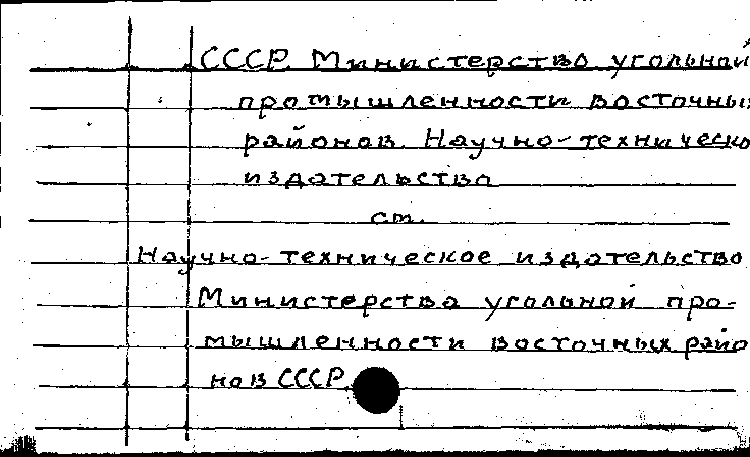 СССР. Министерство угольной
промышленности восточны
районов. Научно-техническо
издательство
см.
Научно-техническое издательство
Министерства угольной про-
мышленности восточных райо
нов СССР